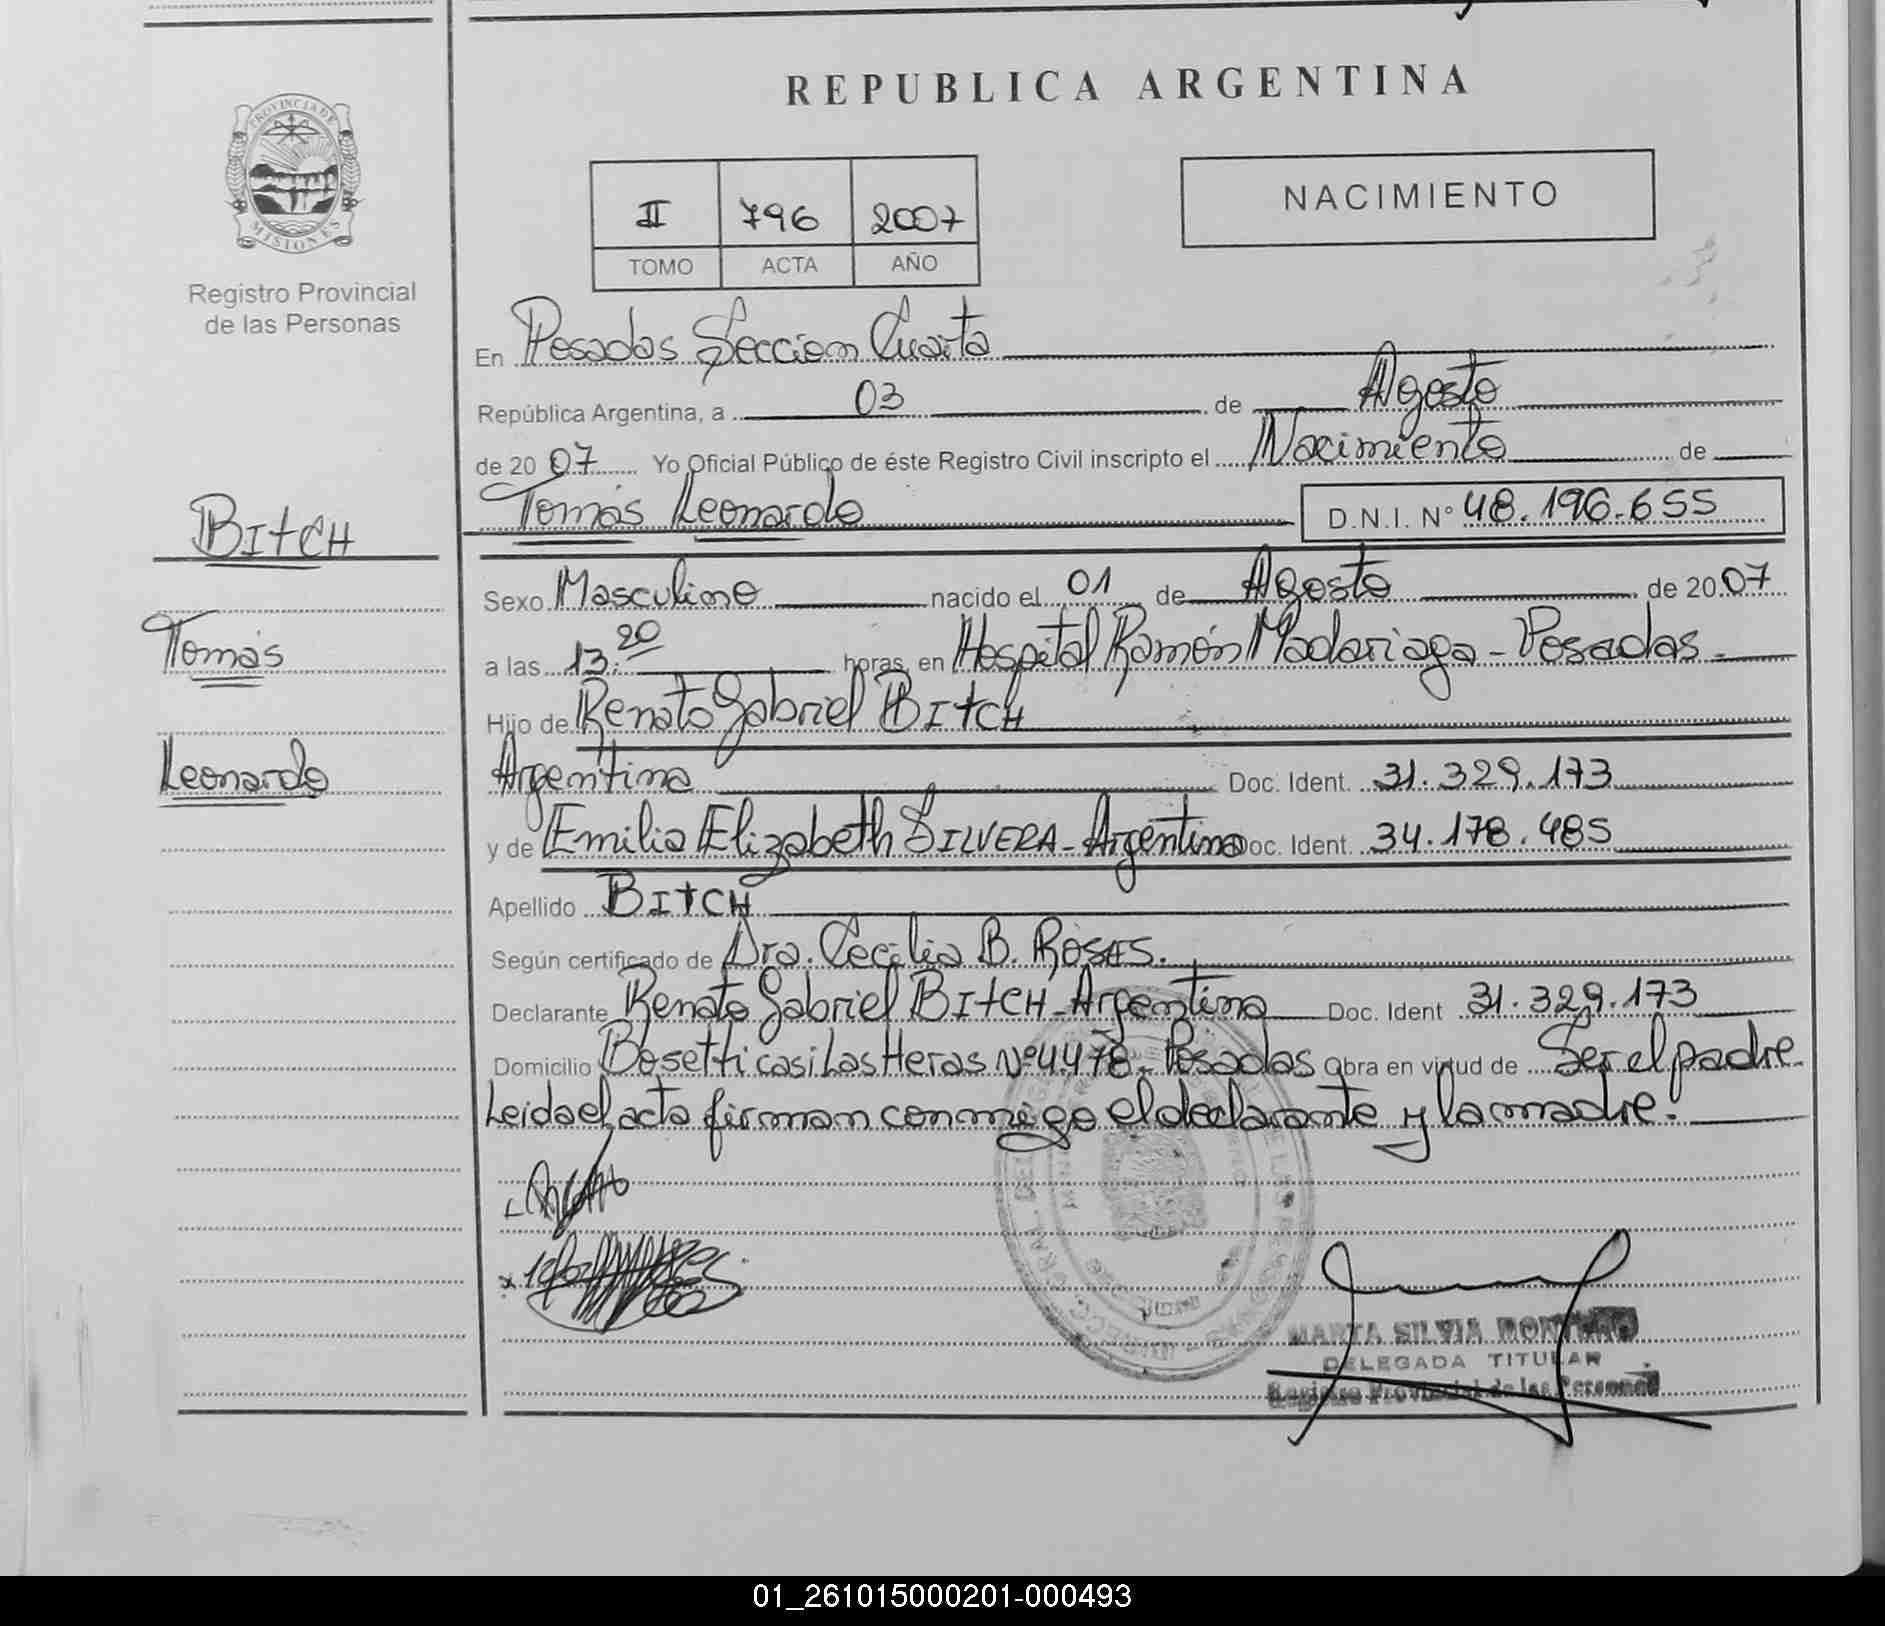 PROVINCIA DE
MISIONES
Registro Provincial
de las Personas
REPUBLICA ARGENTINA
II 796 2007
TOMO ACTA AÑO
NACIMIENTO
En Posadas Sección Cuarta
República Argentina, a 03 de Agosto
de 20 07 Yo Oficial Público de éste Registro Civil inscripto el Nacimiento de
Tomás Leonardo D.N.I. N° 48.196.655
BItCH
Tomás
Leonardo
Sexo Masculino nacido el 01 de Agosto de 20 07
a las 13:20 horas, en Hospital Ramón Madariaga - Posadas.
Hijo de Renato Gabriel BItCH
Argentina Doc. Ident. 31.329.173
y de Emilia Elizabeth SILVERA - Argentina Doc. Ident. 34.178.485
Apellido BItCH
Según certificado de Dra. Cecilia B. ROSAS.
Declarante Renato Gabriel BItCH - Argentina Doc. Ident 31.329.173
Domicilio Bosetti casi Las Heras Nº 4478 - Posadas Obra en virtud de Ser el padre
Leida el acta firman conmigo el declarante y la madre.
MARTA SILVIA
DELEGADA TITULAR
Registro Provincial de las Personas
01_261015000201-000493